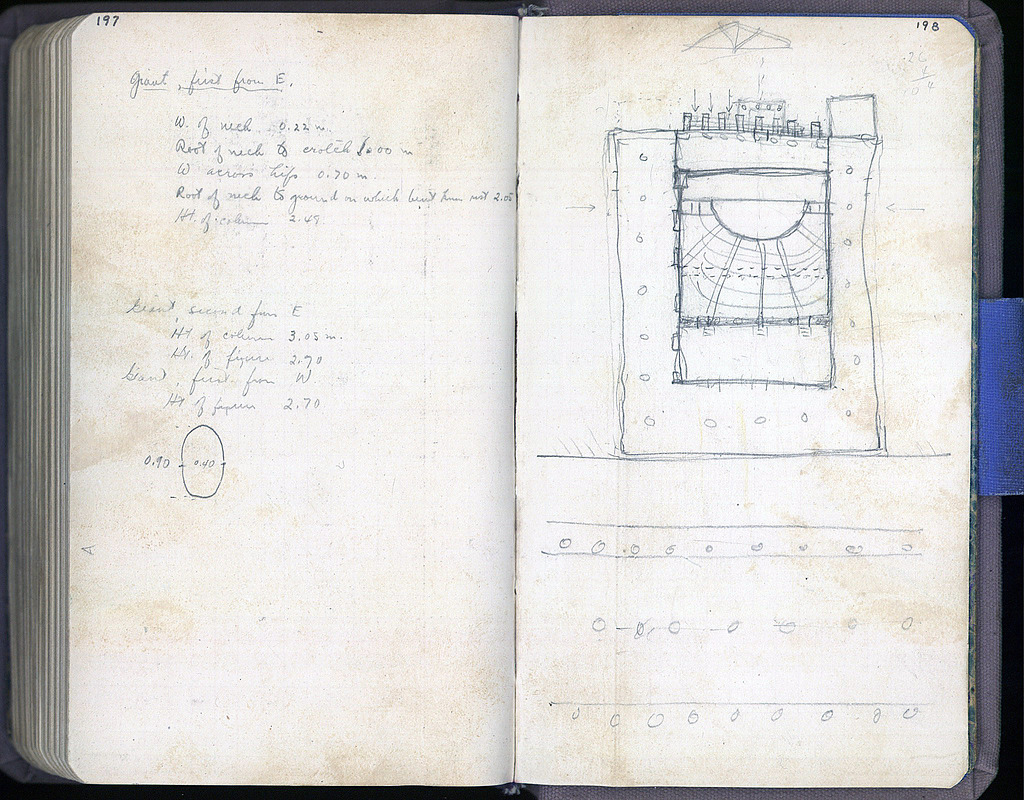 197
Giant, first from E.
W. of neck 0.22 m.
Root of neck to crotch 1.00 m
W across hips 0.70 m.
Root of neck to ground on which rest 2.05
Ht. of column 2.49
Giant, second from E
Ht of column 3.05 m.
Ht. of figure 2.70
Giant, first from W.
Ht of figure 2.70
0.90 0.40
198